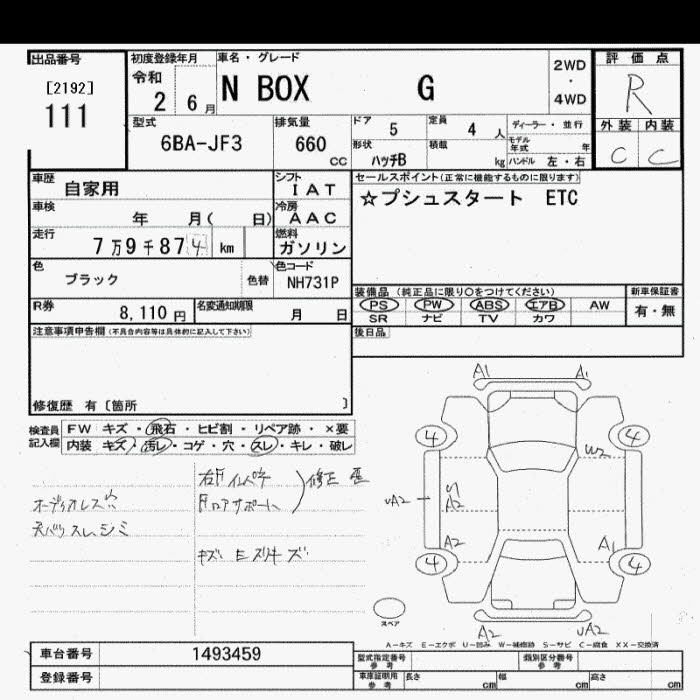 出品番号
[2192]
111
初度登録年月
令和
2 6月
車名・グレード
N BOX G
2WD
・
4WD
評価点
R
外装 内装
C C
型式
6BA-JF3
排気量
660
CC
ドア
5
定員
4 人
ディーラー・並行
モデル年式 年
形状
ハッチB
積載
kg
ハンドル 左・右
車歴
自家用
シフト
IAT
車検
年 月( 日)
冷房
AAC
走行
7万9千874 km
燃料
ガソリン
色
ブラック
色替
色コード
NH731P
R券
8,110円
名変通知期限
月 日
セールスポイント(正常に機能するものに限ります)
☆プシュスタート ETC
装備品(純正品に限り〇をつけてください)
PS PW ABS エアB AW
SR ナビ TV カワ
新車保証書
有・無
後日品
注意事項申告欄(不具合内容等は具体的に記入して下さい)
修復歴 有〔箇所 〕
検査員
記入欄
FW キズ・飛石・ヒビ割・リペア跡・×要
内装 キズ・汚レ・コゲ・穴・スレ・キレ・破レ
オーディオレス穴
スレ、シミ
修正
キズ
A1
A1
4
4
W2
UA2
A2
A2
A1
4
4
A2
UA2
スペア
A-キズ E-エクボ U-凹み W-補修跡 S-サビ C-腐食 XX-交換済
車台番号
1493459
登録番号
型式指定番号
参考
類別区分番号
参考
車庫証明用
参考
長さ cm
幅 cm
高さ cm